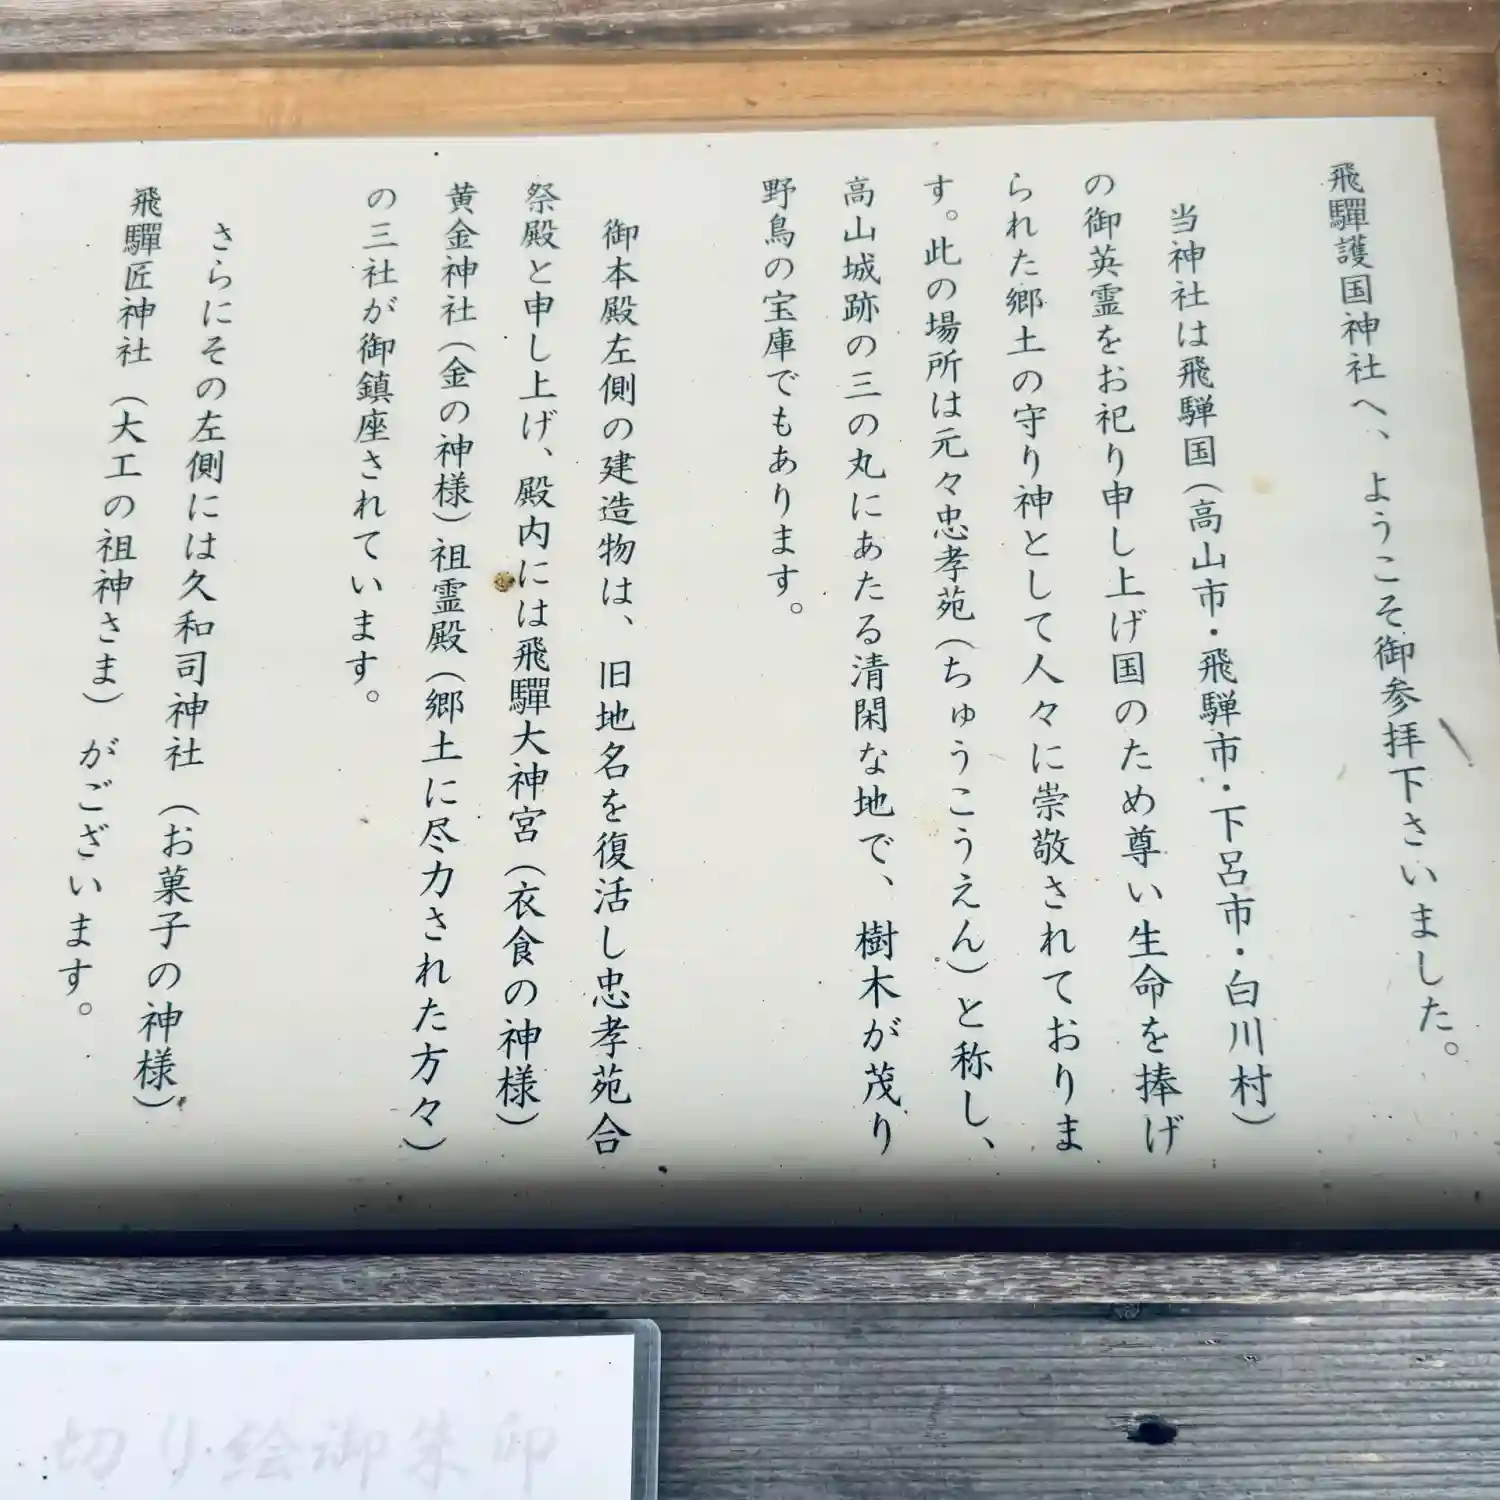 飛驒護国神社へ、ようこそ御参拝下さいました。
当神社は飛騨国(高山市・飛騨市・下呂市・白川村)
の御英霊をお祀り申し上げ国のため尊い生命を捧げ
られた郷土の守り神として人々に崇敬されておりま
す。此の場所は元々忠孝苑(ちゅうこうえん)と称し、
高山城跡の三の丸にあたる清閑な地で、樹木が茂り
野鳥の宝庫でもあります。
御本殿左側の建造物は、旧地名を復活し忠孝苑合
祭殿と申し上げ、殿内には飛驒大神宮(衣食の神様)
黄金神社(金の神様)祖霊殿(郷土に尽力された方々)
の三社が御鎮座されています。
さらにその左側には久和司神社(お菓子の神様)
飛驒匠神社(大工の祖神さま)がございます。
切り絵御朱印